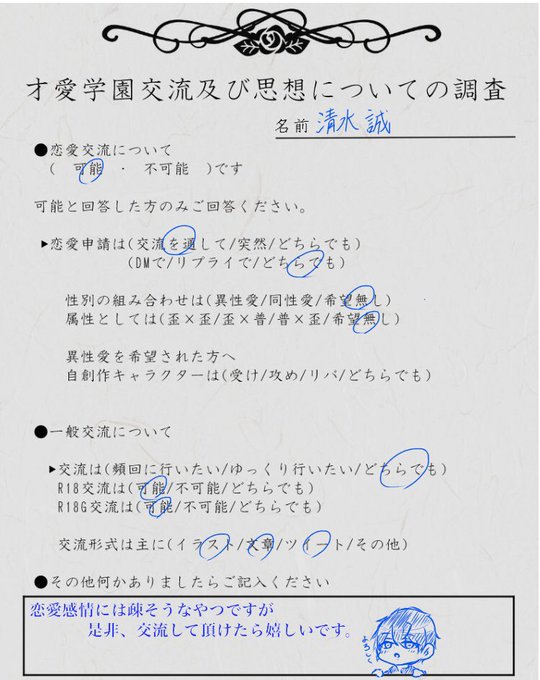 才愛学園交流及び思想についての調査
名前 清水 誠
●恋愛交流について
( 可能 ・ 不可能 )です
可能と回答した方のみご回答ください。
▶恋愛申請は(交流を通して/突然/どちらでも)
(DMで/リプライで/どちらでも)
性別の組み合わせは(異性愛/同性愛/希望無し)
属性としては(歪×歪/歪×普/普×歪/希望無し)
異性愛を希望された方へ
自創作キャラクターは(受け/攻め/リバ/どちらでも)
●一般交流について
▶交流は(頻回に行いたい/ゆっくり行いたい/どちらでも)
R18交流は(可能/不可能/どちらでも)
R18G交流は(可能/不可能/どちらでも)
交流形式は主に(イラスト/文章/ツイート/その他)
●その他何かありましたらご記入ください
恋愛感情には疎そうなやつですが
是非、交流して頂けたら嬉しいです。
よろしく